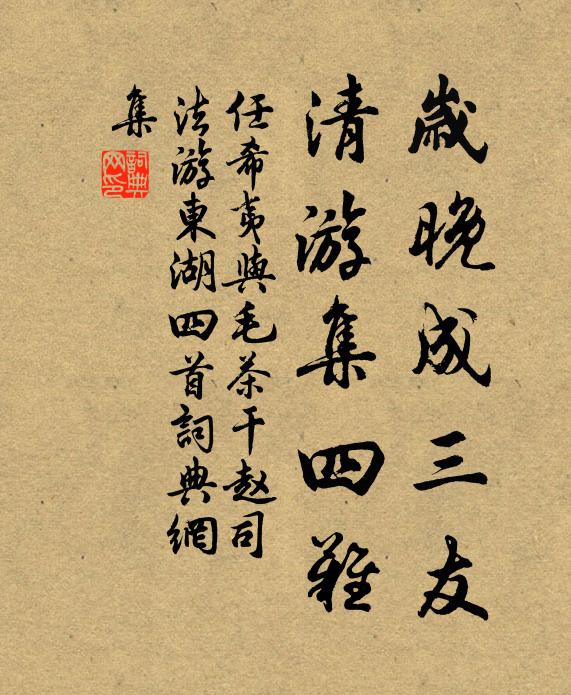 歲晚成三友
清游集四難
任希夷與毛茶干赵司
法游東湖四首詞典網
集
詞典網印